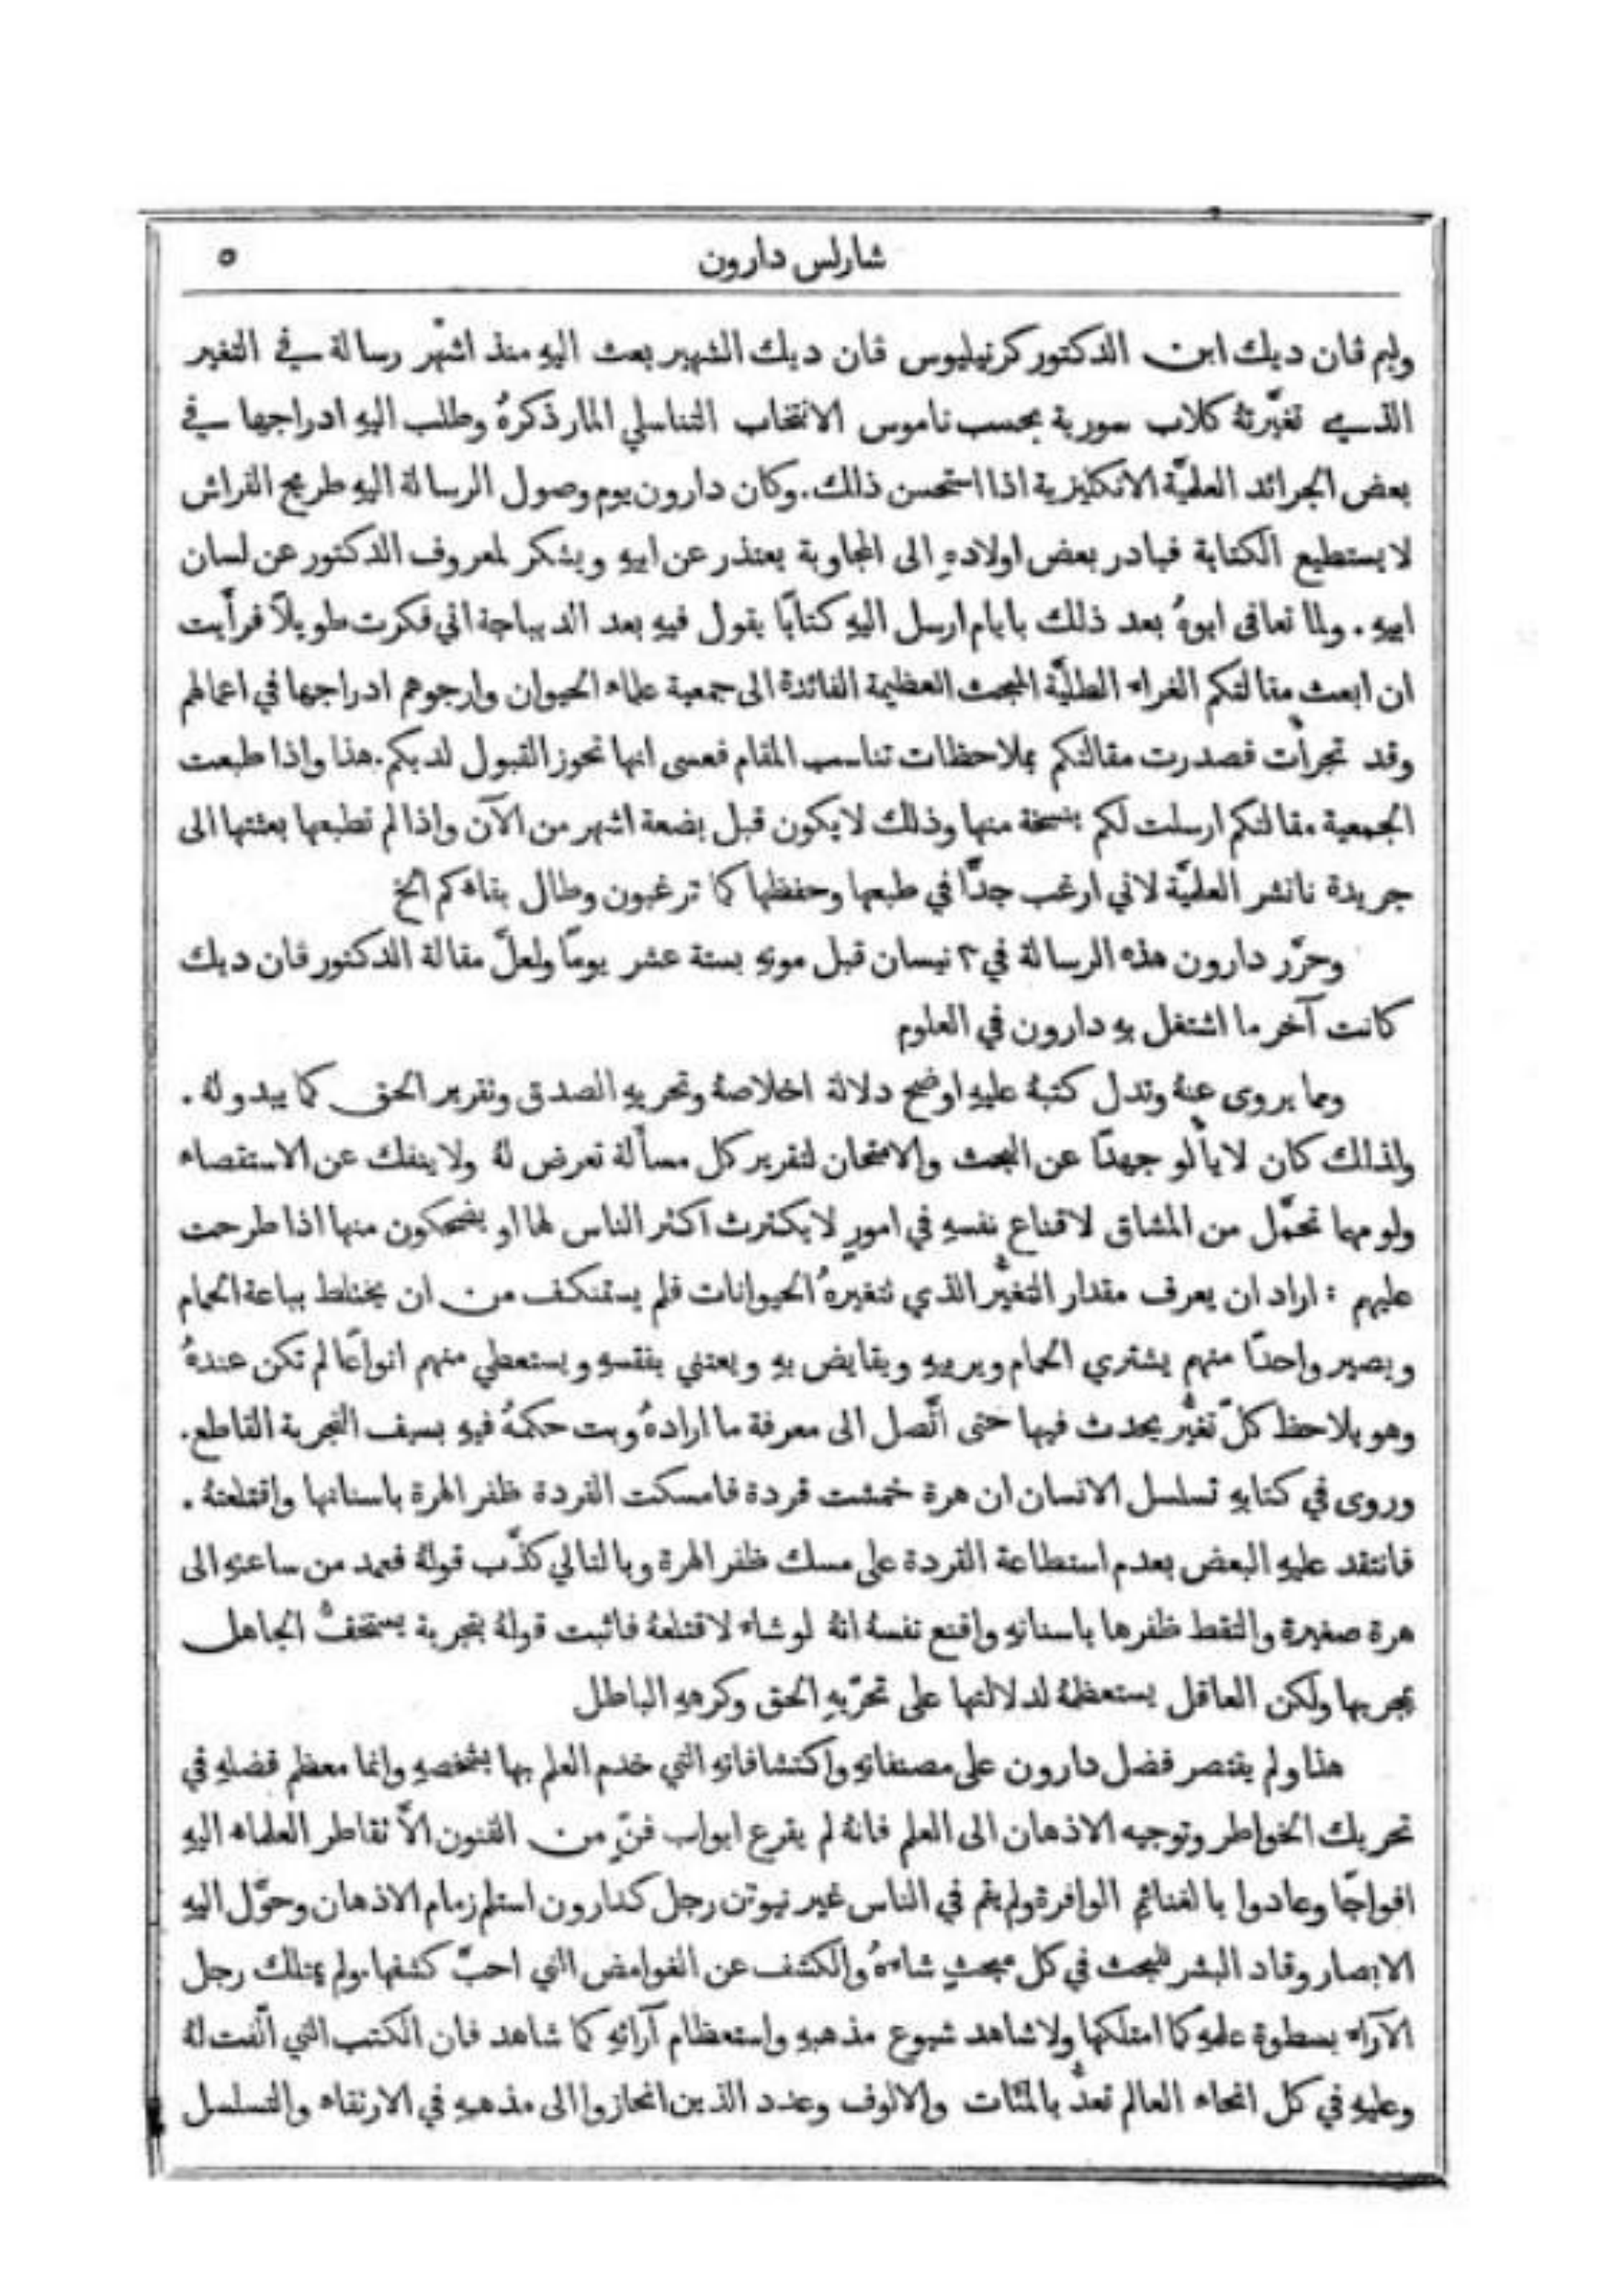 شارلس دارون ٥
وليم ڤان ديك ابن الدكتور كرنيليوس ڤان ديك الشهير بعث اليهِ منذ اشهُر رسالة في التغير
الذي تغيَّرتهُ كلاب سورية بحسب ناموس الانتخاب التناسلي المار ذكرهُ وطلب اليهِ ادراجها في
بعض الجرائد العلميَّة الانكليزية اذا استحسن ذلك. وكان دارون يوم وصول الرسالة اليهِ طريح الفراش
لا يستطيع الكتابة فبادر بعض اولادهِ الى المجاوبة يعتذر عن ابيهِ ويشكر لمعروف الدكتور عن لسان
ابيهِ. ولما تعافى ابوهُ بعد ذلك بايام ارسل اليهِ كتابًا يقول فيهِ بعد الديباجة اني فكرت طويلاً فرأَيت
ان ابعث مقالتكم الغراء الطليَّة المبحث العظيمة الفائدة الى جمعية علماء الحيوان وارجوهم ادراجها في اعمالهم
وقد تجرأْت فصدرت مقالتكم بملاحظات تناسب المقام فعسى انها تحوز القبول لديكم. هذا واذا طبعت
الجمعية مقالتكم ارسلت لكم بنسخة منها وذلك لا يكون قبل بضعة اشهر من الآن واذا لم تطبعها بعثتها الى
جريدة ناتشر العلميَّة لاني ارغب جدًّا في طبعها وحفظها كما ترغبون وطال بقاءكم الخ
وحرَّر دارون هذه الرسالة في ٣ نيسان قبل موتهِ بستة عشر يومًا ولعلَّ مقالة الدكتور ڤان ديك
كانت آخر ما اشتغل بهِ دارون في العلوم
ومما يروى عنهُ وتدل كتبهُ عليهِ اوضح دلالة اخلاصهُ وتحريهِ الصدق وتقرير الحق كما يبدو لهُ.
ولذلك كان لا يأْلو جهدًا عن البحث والامتحان لتقرير كل مسأَلة تعرض لهُ ولا ينفك عن الاستقصاء
ولو مهما تحمَّل من المشاق لاقناع نفسهِ في امورٍ لا يكترث اكثر الناس لها او يضحكون منها اذا طرحت
عليهم: اراد ان يعرف مقدار التغيُّر الذي تتغيرهُ الحيوانات فلم يستنكف من ان يختلط بباعة الحمام
ويصير واحدًا منهم يشتري الحمام ويربيهِ ويقايض بهِ ويعتني بفقسهِ ويستعطي منهم انواعًا لم تكن عندهُ
وهو يلاحظ كلّ تغيُّر يحدث فيها حتى اتَّصل الى معرفة ما ارادهُ وبت حكمهُ فيهِ بسيف التجربة القاطع.
وروى في كتابهِ تسلسل الانسان ان هرة خمشت قردة فامسكت القردة ظفر الهرة باسنانها واقتلعتهُ.
فانتقد عليهِ البعض بعدم استطاعة القردة على مسك ظفر الهرة وبالتالي كذَّب قولهُ فعمد من ساعتهِ الى
هرة صغيرة والتقط ظفرها باسنانهِ واقنع نفسهُ انهُ لو شاء لاقتلعهُ فاثبت قولهُ بتجربة يستخفُّ الجاهل
بمجربها ولكن العاقل يستعظمهُ لدلالتها على تحرّيهِ الحق وكرههِ الباطل
هذا ولم يقتصر فضل دارون على مصنفاتهِ واكتشافاتهِ التي خدم العلم بها بشخصهِ وانما معظم فضلهِ في
تحريك الخواطر وتوجيه الاذهان الى العلم فانهُ لم يقرع ابواب فنٍّ من الفنون الاَّ تقاطر العلماء اليهِ
افواجًا وعادوا بالغنائم الوافرة ولم يقم في الناس غير نيوتن رجل كدارون استلم زمام الاذهان وحوَّل اليهِ
الابصار وقاد البشر للبحث في كل مبحثٍ شاءهُ والكشف عن الغوامض التي احبَّ كشفها. ولم يمتلك رجل
الآراء بسطوة علمهِ كما امتلكها ولا شاهد شيوع مذهبهِ واستعظام آرائهِ كما شاهد فان الكتب التي أُلّفت لهُ
وعليهِ في كل انحاء العالم تعدُّ بالمئات والالوف وعدد الذين انحازوا الى مذهبهِ في الارتقاء والتسلسل